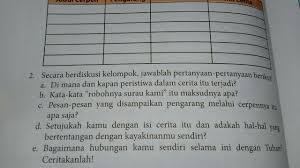 2. Secara berdiskusi kelompok, jawablah pertanyaan-pertanyaan
a. Di mana dan kapan peristiwa dalam cerita itu terjadi?
b. Kata-kata "robohnya surau kami" itu maksudnya apa?
c. Pesan-pesan yang disampaikan pengarang melalui cerpennya
apa saja?
d. Setujukah kamu dengan isi cerita itu dan adakah hal-hal yang
bertentangan dengan kayakinanmu sendiri?
e. Bagaimana hubungan kamu sendiri selama ini dengan Tuhan?
Ceritakanlah!